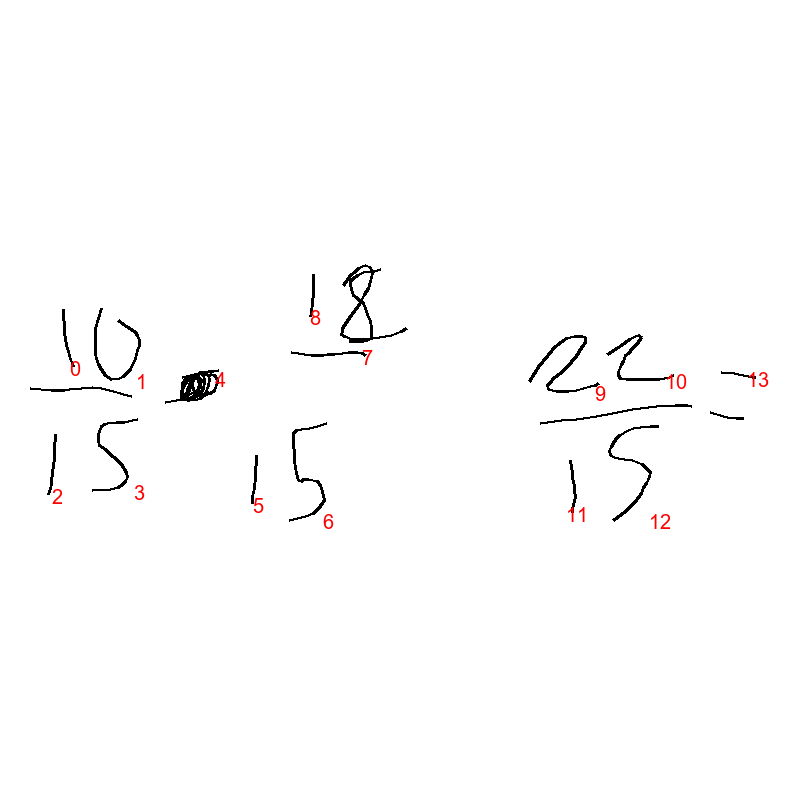 10 18
22
15 15 15 =
0 1 2 3 4 5 6 7 8 9 10 11 12 13